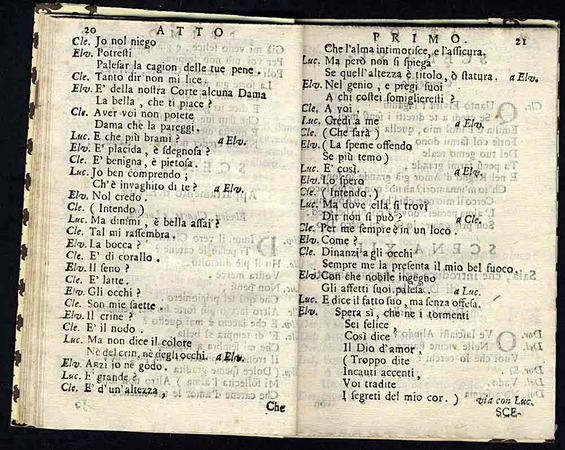 20 ATTO
Cle. Jo nol niego
Elv. Potresti
Palesar la cagion delle tue pene.
Cle. Tanto dir non mi lice.
Elv. E' della nostra Corte alcuna Dama
La bella, che ti piace?
Cle. Aver voi non potete
Dama che la pareggi.
Luc. E che più brami? a Elv.
Elv. E' placida, è sdegnosa?
Cle. E' benigna, è pietosa.
Luc. Jo ben comprendo;
Ch'è invaghito di te? a Elv.
Elv. Nol credo.
Cle. (Intendo)
Luc. Ma dimmi, è bella assai?
Cle. Tal mi rassembra.
Elv. La bocca?
Cle. E' di corallo.
Elv. Il seno?
Cle. E' latte.
Elv. Gli occhi?
Cle. Son mie saette.
Elv. Il crine?
Cle. E' il nodo.
Luc. Ma non dice il colore
Nè del crin, nè degli occhi. a Elv.
Elv. Anzi io ne godo.
Luc. E' grande?
Cle. E' d'un'altezza,
Che
PRIMO. 21
Che l'alma intimorisce, e l'assicura.
Luc. Ma però non si spiega
Se quell'altezza è titolo, ò statura. a Elv.
Elv. Nel genio, e pregi suoi
A chi costei somigliereiti?
Cle. A voi.
Luc. Credi à me a Elv.
Cle. (Che sarà)
Elv. (La speme offendo
Se più temo)
Luc. E' così. a Elv.
Elv. Lo spero
Cle. (Intendo.)
Luc. Ma dove ella si trovi
Dir non si può? a Cle.
Cle. Per me sempre è in un loco.
Elv. Come?
Cle. Dinanzi agli occhi
Sempre me la presenta il mio bel fuoco.
Elv. Con che nobile ingegno
Gli affetti suoi palesa. a Luc.
Luc. E dice il fatto suo, ma senza offesa.
Elv. Spera sì, che ne i tormenti
Sei felice,
Così dice
Il Dio d'amor,
(Troppo dite
Incauti accenti,
Voi tradite
I segreti del mio cor.) via con Luc.
SCE-